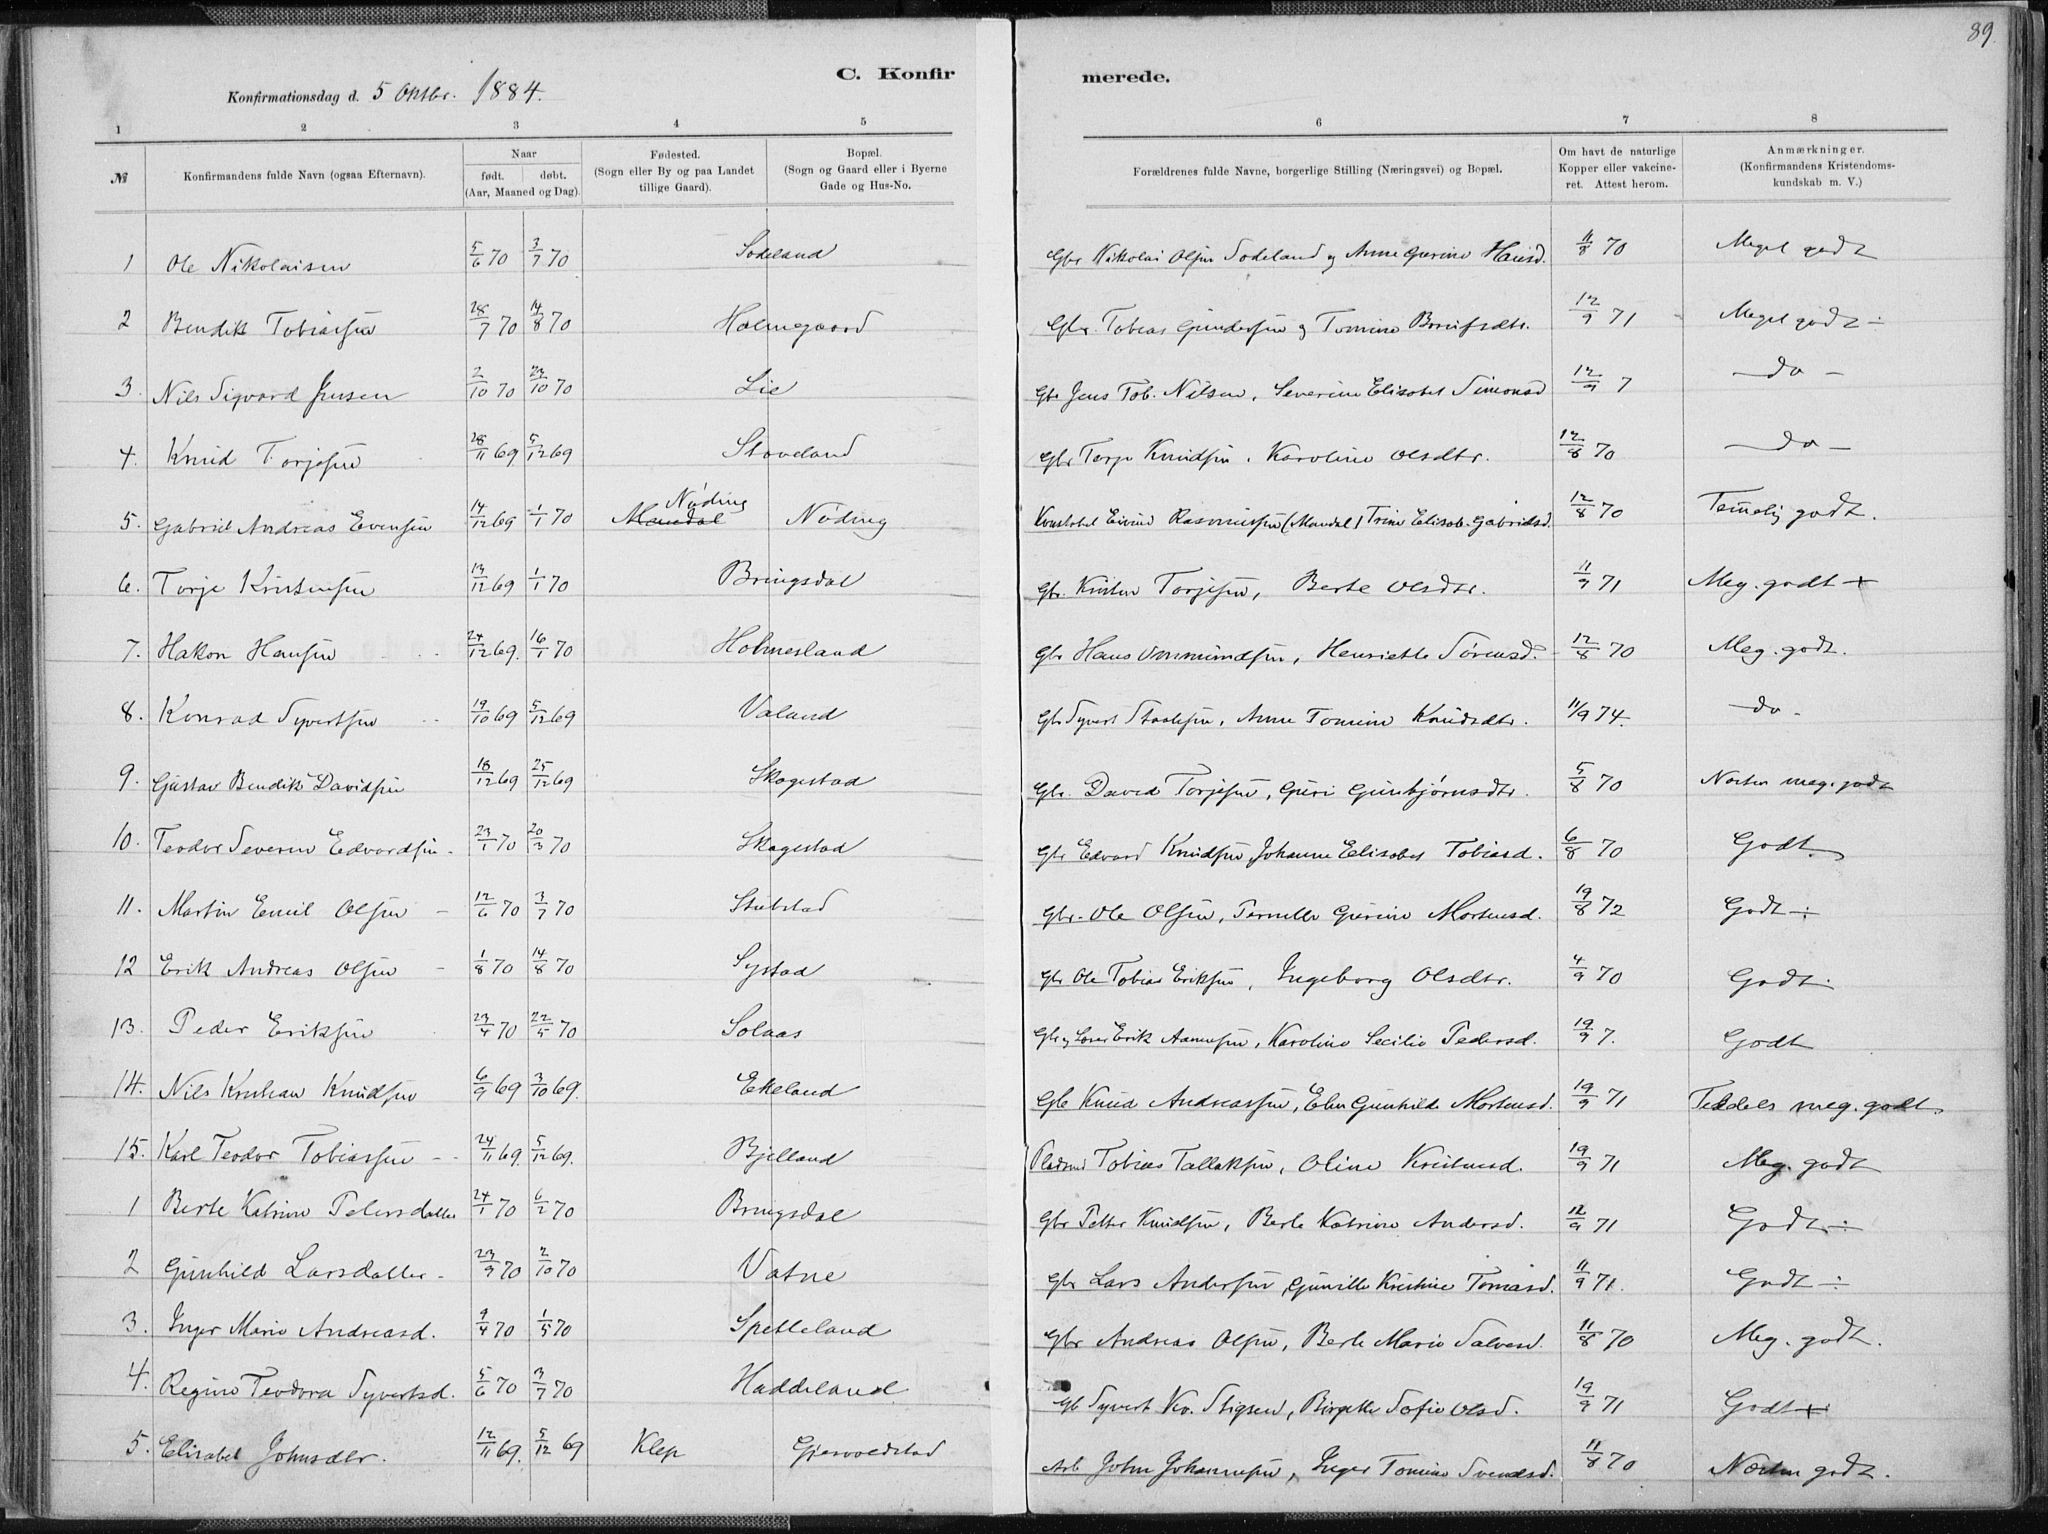 89.
C. Konfirmerede.
Konfirmationsdag d. 5 Oktbr. 1884.
1 2 3 4 5 6 7 8
№ Konfirmandens fulde Navn (ogsaa Efternavn). Naar født. døbt. (Aar, Maaned og Dag). Fødested. (Sogn eller By og paa Landet tillige Gaard). Bopæl. (Sogn og Gaard eller i Byerne Gade og Hus-No. Forældrenes fulde Navne, borgerlige Stilling (Næringsvei) og Bopæl. Om havt de naturlige Kopper eller vakcineret. Attest herom. Anmærkninger. (Konfirmandens Kristendomskundskab m. V.)
1 Ole Nikolaisen 5/6 70 3/7 70 Sodeland Gbr Nikolai Olsen Sodeland og Anne Gurine Hansd. 11/8 70 Meget godt
2 Bendik Tobiassen 28/7 70 14/8 70 Holmegaard Gbr. Tobias Gundersen og Tomine 12/9 71 Meget godt ÷
3. Nils Sigvard Jensen 2/10 70 23/10 70 Lie Gbr Jens Tob. Nilsen, Severine Elisabet Simonsd 12/9 7 – do –
4. Knud Torjesen 28/11 69 5/12 69 Stoveland Gbr Torje Knudsen, Karoline Olsdtr. 12/8 70 – do –
5. Gabriel Andreas Evensen 14/12 69 1/1 70 Mandal Nøding Nøding Konstabel Eivind Rasmussen (Mandal) Trine Elisab. Gabrielsd. 12/8 70 Temelig godt.
6. Torje Kristensen 13/12 69 1/1 70 Bringsdal Gbr. Kristen Torjesen, Berte Olsdtr. 11/9 71 Meg. godt +
7. Hakon Hansen 24/12 69. 16/1 70 Holmesland Gbr Hans Ommundsen, Henriette Sørensd. 12/8 70 Meg. godt.
8. Konrad Syvertsen 19/10 69 5/12 69 Valand Gbr Syvert Staalesen, Anne Tomine Knudsdtr. 11/9 74. do -
9. Gustav Bendik Davidsen 18/12 69 25/12 69 Skogestad Gbr. David Torjesen, Guri Gunbjørnsdtr. 5/8 70 Næsten meg. godt
10. Teodor Severin Edvardsen - 23/1 70 20/3 70 Skogestad Gbr Edvard Knudsen Johanne Elisabet Tobiasd. 6/8 70 Godt.
11. Martin Emil Olsen - 12/6 70 3/7 70 Stubstad Gbr. Ole Olsen, Pernille Gurine Mortensd. 19/8 72 Godt ÷
12 Erik Andreas Olsen - 1/8 70 14/8 70 Systad Gbr Ole Tobias Eriksen, Ingeborg Olsdtr. 4/9 70 Godt.
13. Peder Eriksen 23/4 70 22/5 70 Solaas Gbr og Erik Aanensen, Karoline Secilie Pedersd. 19/9 7. Godt
14. Nils Kristian Knudsen 6/9 69 3/10 69. Ekeland Gbr Knud Andreassen, Elen Gunhilde Mortensd. 19/9 71 Tildels meg. godt.
15. Karl Teodor Tobiassen - - 24/11 69. 5/12 69. Bjelland Pladsmd Tobias Tallaksen, Oline Kristensd. 19/9 71 Meg. godt
1 Berte Katrine Petersdatter 24/1 70 6/2 70 Bringsdal Gbr Petter Knudsen, Berte Katrine Andersd. 12/9 71 Godt ÷
2 Gunhild Larsdatter - 23/9 70 2/10 70 Vatne Gbr Lars Andersen, Gunille Kristine Tomasd. 11/9 71. Godt ÷
3. Inger Marie Andreasd. 9/4 70 1/5 70 Spetteland Gbr Andreas Olsen, Berte Marie Salvesd. 11/8 70 Meg. godt.
4. Regine Teodora Syvertsd. 5/6 70 3/7 70 Haddeland Gb Syvert Kr. Stigsen, Birgitte Sofie Olsd. 19/9 71 Godt +
5. Elisabet Johnsdtr. 12/11 69. 5/12 69 Klep Gjervoldstad Arb John Johannesen, Inger Tomine Svendsd. 11/8 70 Næsten godt.